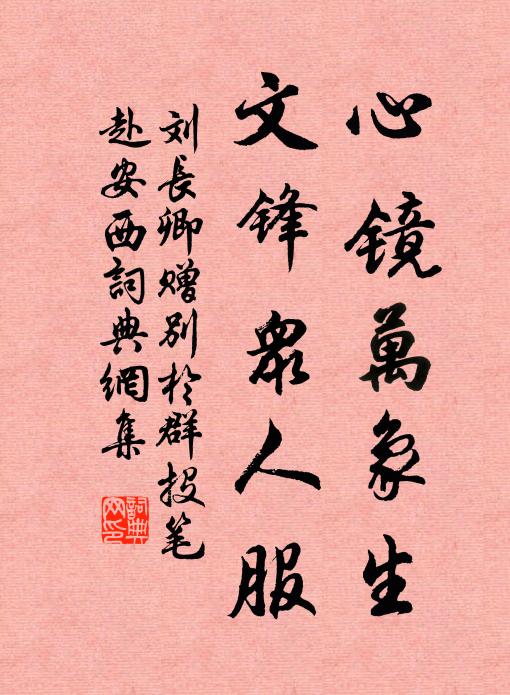 心镜萬象生
文锋眾人服
刘長卿赠别於群投笔
赴安西詞典網集
詞典
网印